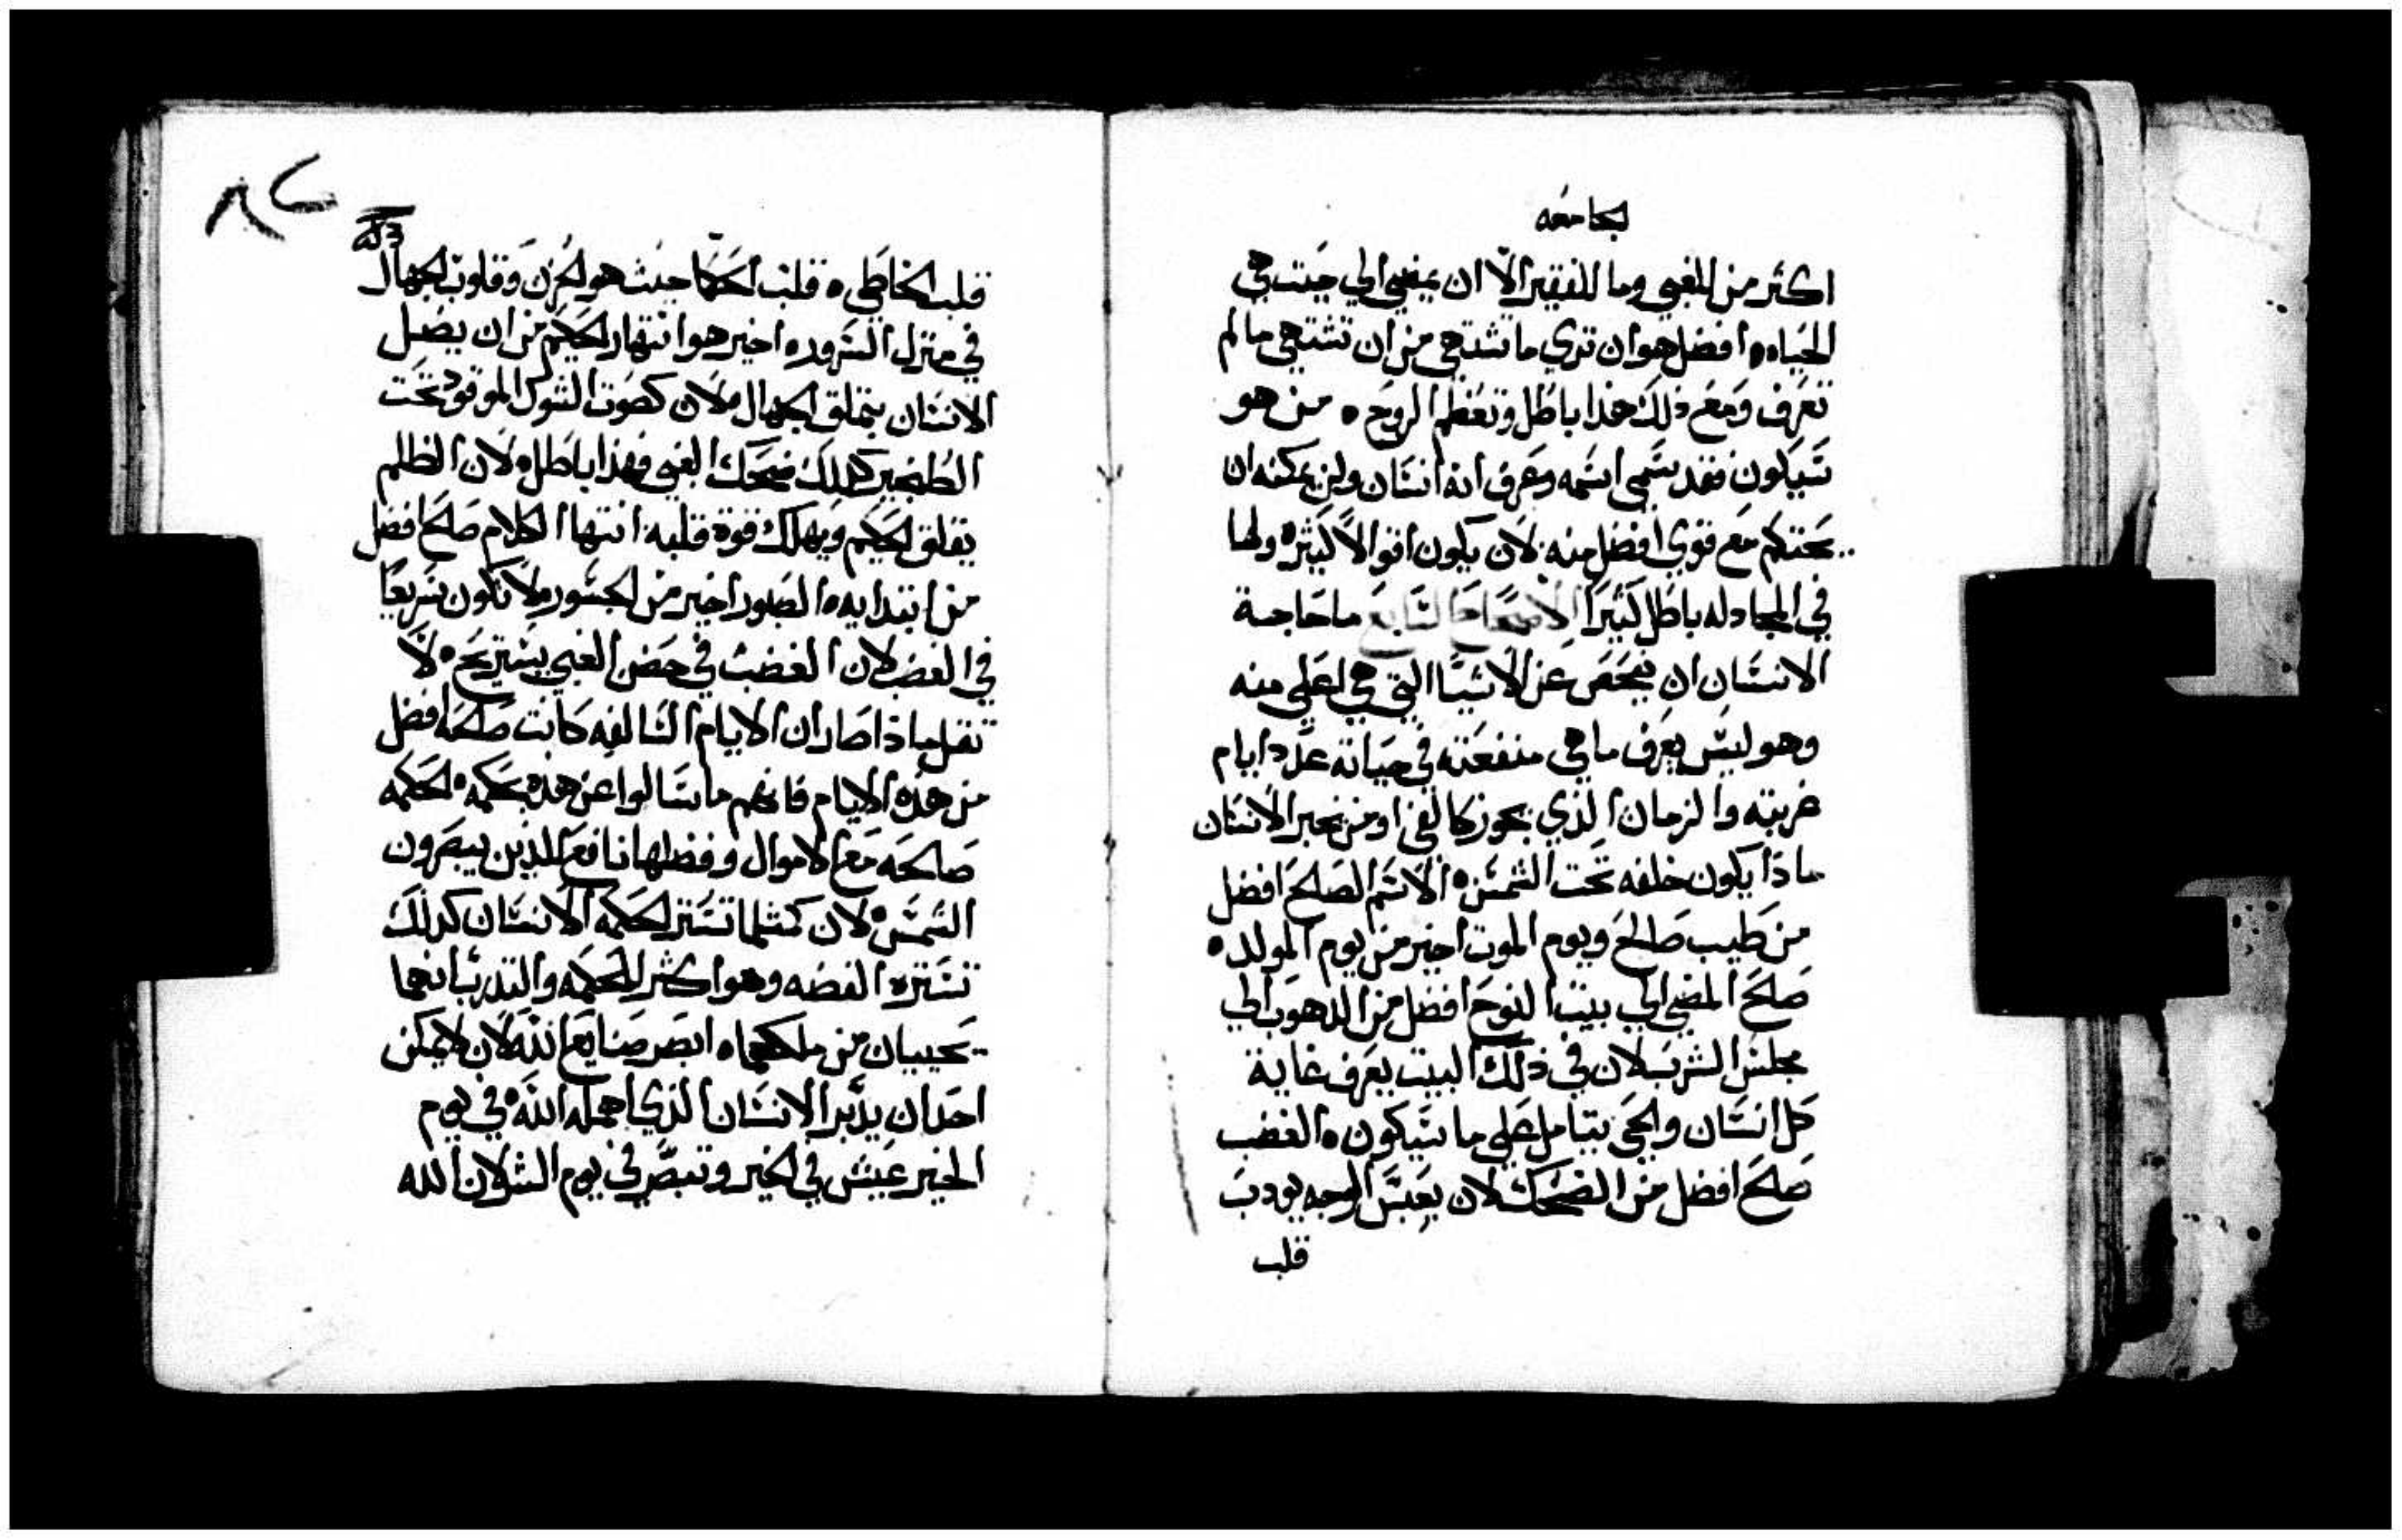 الجامعه
اكثر من الغبي وما للفقير الّا ان يمضي الي حيت هي
الحياه ٥ افضل هو ان تري ما تشتهي من ان تشتهي ما لم
تعرف ومع ذلك هذا باطل وتعظم الروح ٥ من هو
سيكون فقد سمي اسمه وعرف انه انسان ولن يمكنه ان
يحتكم مع قوي افضل منه لان يكون اقوالاً كثيره ولها
في المجادله باطل كثيراً الاصحاح السابع ما حاجة
الانسان ان يفحص عن الاشيا التي هي اعلي منه
وهو ليس يعرف ما هي منفعته في حياته عدد ايام
غربته والزمان الذي يجوز كالفي او من يخبر الانسان
ماذا يكون خلفه تحت الشمس ٥ الاسم الصالح افضل
من طيب صالح ويوم الموت اخير من يوم المولد ٥
صلح المضي الي بيت النوح افضل من الدهوب الي
مجلس الشرب لان في ذلك البيت يعرف غاية
كل انسان والحي يتامل علي ما سيكون ٥ الغضب
صلح افضل من الضحك لان بعبس الوجه يودب
قلب
قلب الخاطي ٥ قلب الحكما حيث هو الحزن وقلوب الجهال
في منزل السرور ٥ اخير هو انتهار الحكيم من ان يضل
الانسان بتملق الجهال ٥ لان كصوت الشوك الموقود تحت
الطنجير كذلك ضحك الغبي فهذا باطل ٥ لان الظلم
يقلق الحكيم ويهلك قوة قلبه انتها الكلام صالح افضل
من ابتدايه ٥ الصبور اخير من الجسور ٥ لا تكون سريعاً
في الغضب لان الغضب في حضن الغبي يستريح ٥ لا
تقل ماذا صار ان الايام السالفه كانت صالحه افضل
من هذه الايام فانهم ما سالوا عن هذه بحكمه ٥ الحكمه
صالحه مع الاموال وفضلها نافع للذين يبصرون
الشمس ٥ لان كمثلما تستر الحكمه الانسان كذلك
تستره الفضه وهو اكثر للحكمه والتدرب انهما
يحييان من ملكهما ٥ ابصر صنايع الله لان لا يمكن
احد ان يدبر الانسان الذي اهمله الله ٥ في يوم
الخير عيش في الخير وتبصّر في يوم الشر لان الله